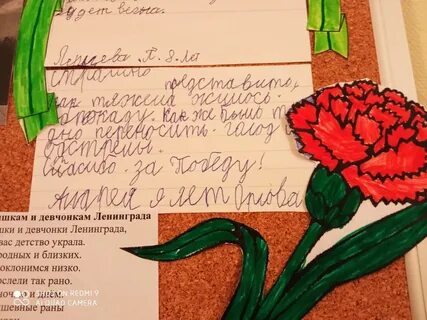 будет весна.
П. 8 лет
Страшно представить,
как тяжело жилось
Как же было
переносить голод и
обстрелы.
Спасибо за Победу!
Андрей я лет Орлова
шкам и девчонкам Ленинграда
шки и девчонки Ленинграда,
вас детство украла.
родных и близких.
поклонимся низко.
ослели так рано.
ночью и днём.
шевные раны
SHOT ON REDMI 9
AI QUAD CAMERA